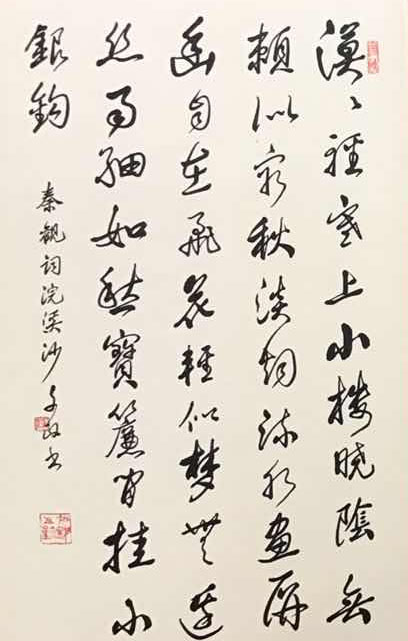 漠〻輕寒上小樓曉陰無
賴似窮秋淡烟流水畫屏
幽自在飛花輕似夢無邊
絲雨細如愁寶簾閒挂小
銀鈎
秦觀詞浣溪沙 書